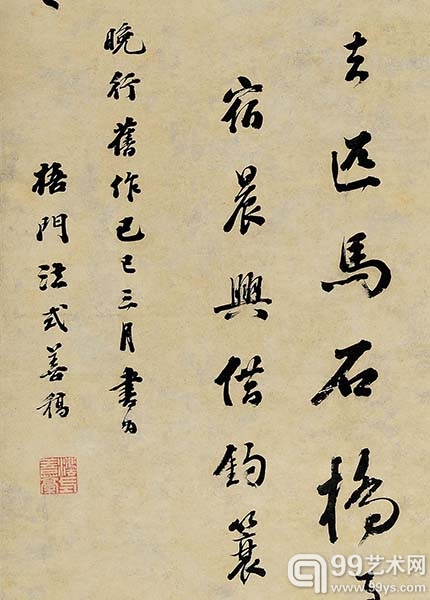 去匹馬石橋
宿晨興借釣蓑
晚行舊作己巳三月書為
梧門法式善稿
99艺术网
www.99ys.com